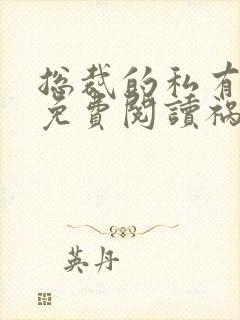 总裁的私有
免費閱讀禍
英丹